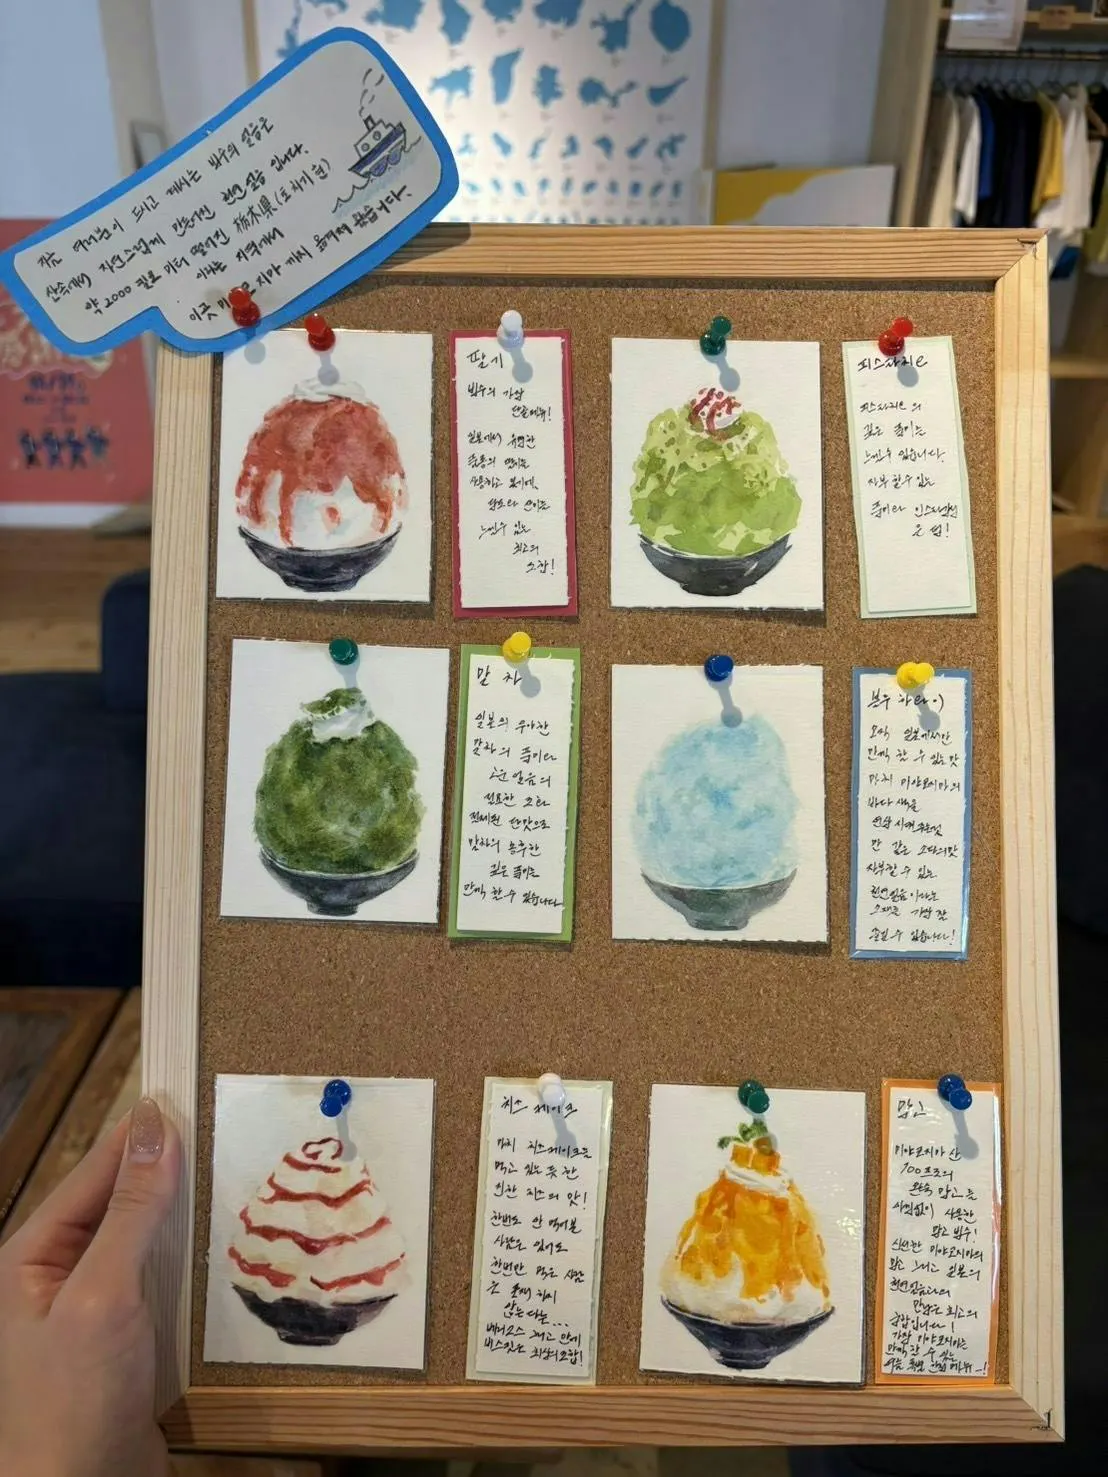 지금 여러분이 드시고 계시는 빙수의 얼음은
산속에서 자연스럽게 만들어진 천연 얼음 입니다.
약 2000 킬로 미터 떨어진 栃木県(토치기현)
이라는 지역에서
이곳 미야코지마 까지 옮겨져 왔습니다.
딸기
빙수의 가장
단골메뉴!
일본에서 유명한
품종의 딸기를
사용하고 있기에,
최고의
조합!
피스타치오
피스타치오의
깊은 풍미를
느낄수 있습니다.
자부 할수 있는
풍미라 인스타감성
은 덤!
말차
일본의 우아한
말차의 풍미와
얼음의
절묘한 조화
절제된 단맛으로
말차의 농후한
깊은 풍미를
만끽 할 수 있습니다.
블루 하와이
오직 일본에서만
만끽 할 수 있는 맛
마치 미야코지마의
바다 색을
연상 시켜주는것
만 같은 소다의맛
자부할 수 있는
천연얼음 이라는
소재를 가장 잘
즐길 수 있습니다!
치즈 케이크
마치 치즈케이크를
먹고 있는 듯 한
진한 치즈의 맛!
한번도 안 먹어본
사람은 있어도
한번만 먹은 사람
은 존재 하지
않는다는...
베리소스 그리고 안에
비스킷은 최상의조합!
망고
미야코지마 산
100프로의
완숙 망고를
아낌없이 사용한
망고 빙수!
신선한 미야코지마의
망고 그리고 일본의
천연얼음과의
만남은 최고의
궁합입니다!
가장 미야코지마를
만끽 할 수 있는
여름 특별 한정 메뉴-!